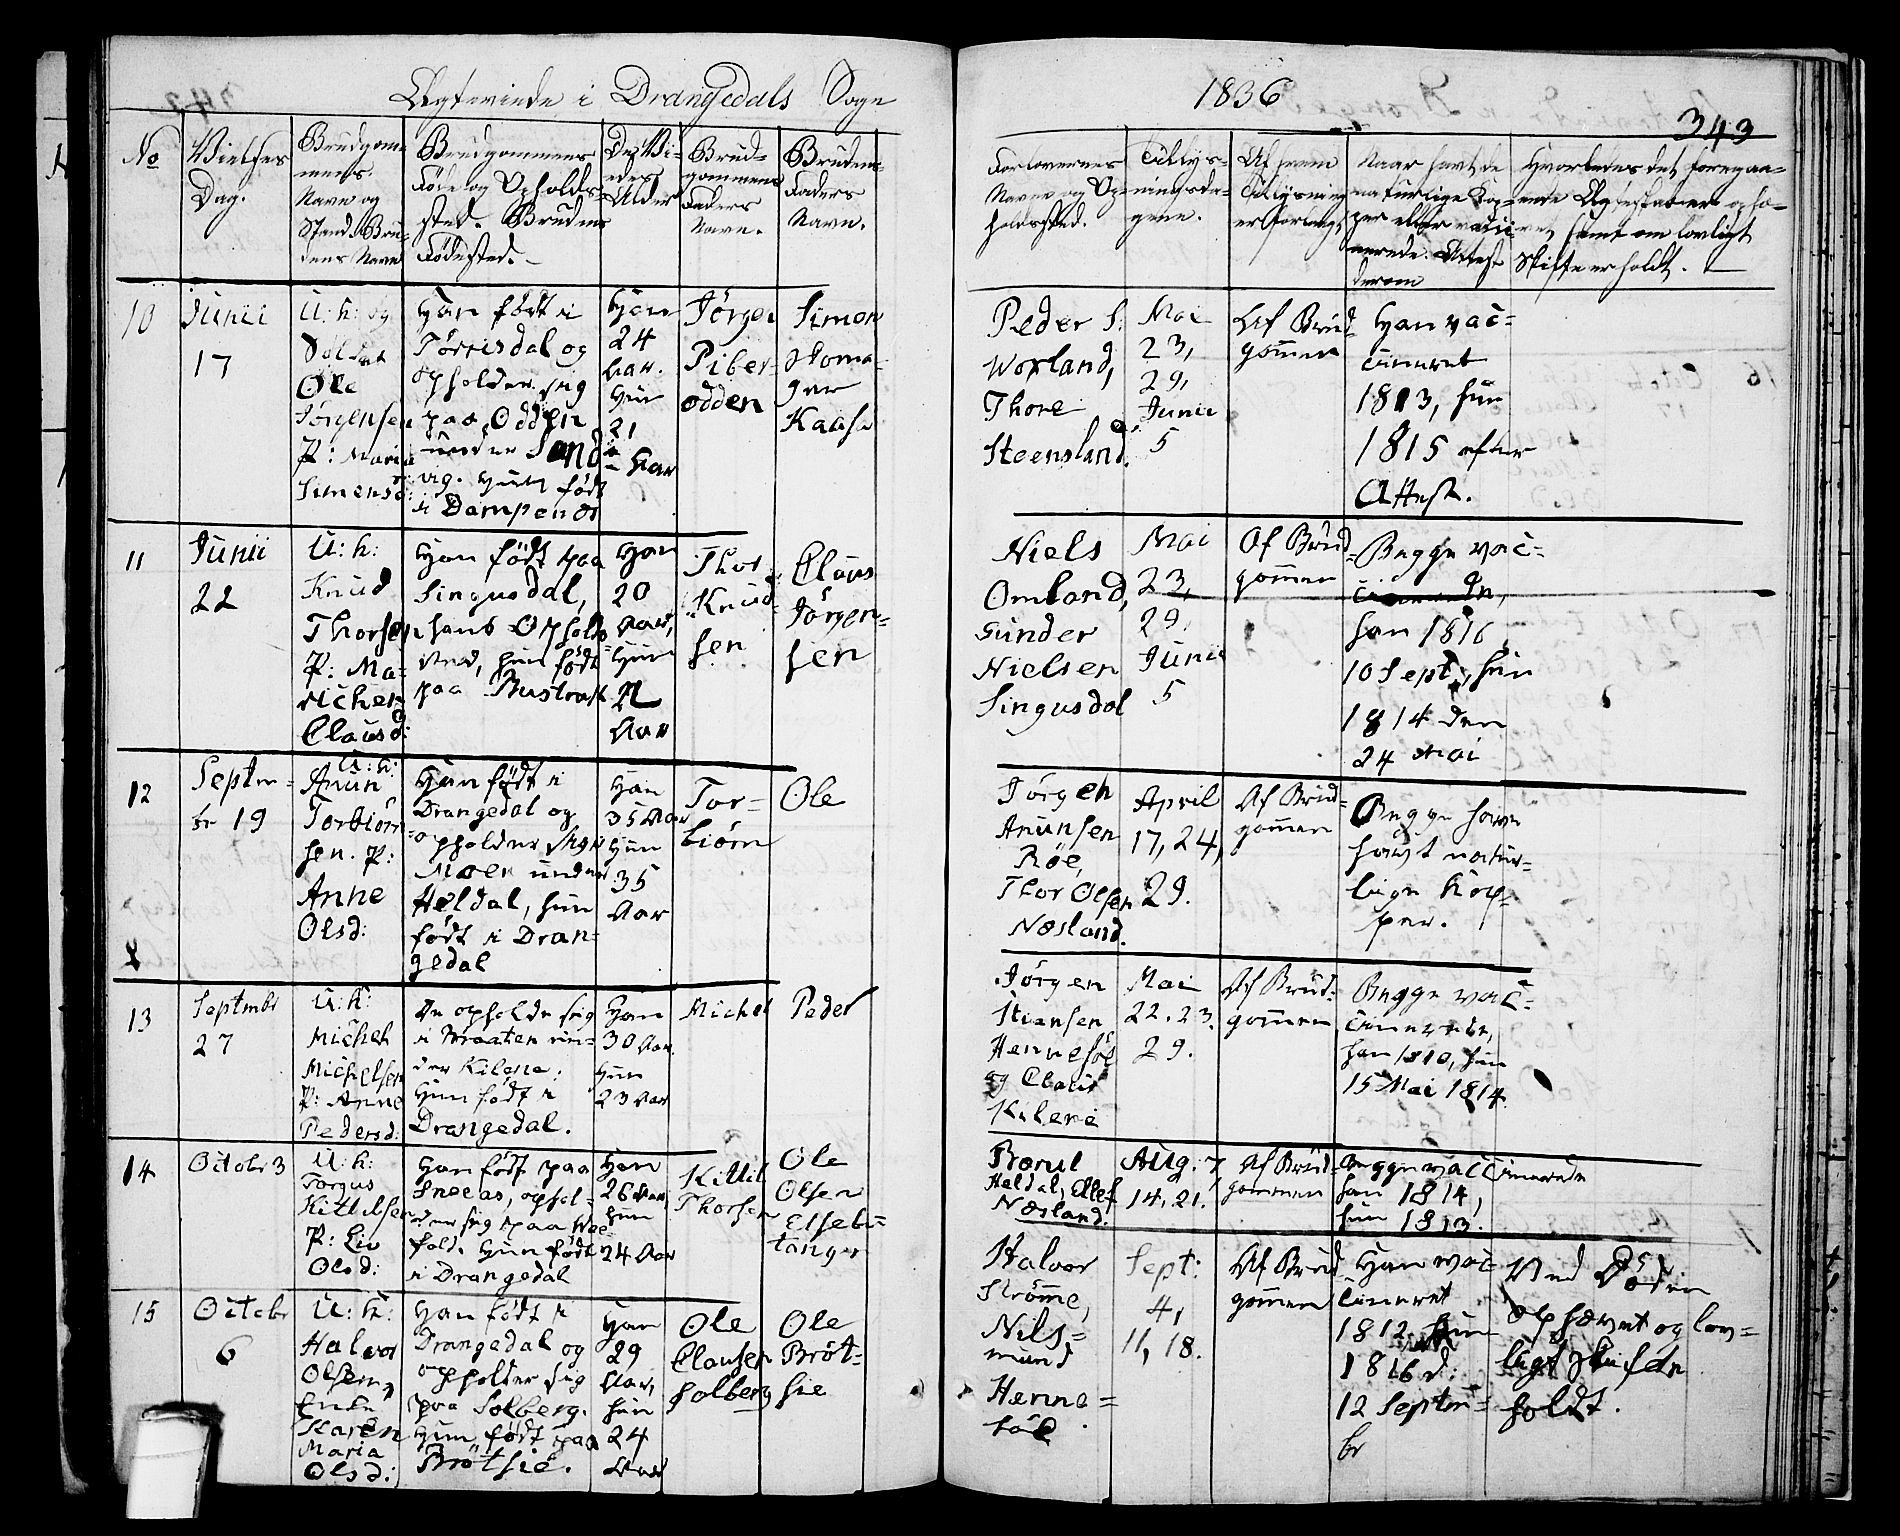 Ægteviede i Drangedals Sogn
1836
343
No
Vielses
Dag.
Brudgom-
mens
Navn og
Stand. Bru-
dens Navn
Brudgommens
Føde og Opholds-
sted. Brudens
Fødested.
De Vi-
edes
Alder
Brud-
gommens
Faders
Navn.
Brudens
Faders
Navn.
Forlovernes
Navne og Op-
holdssted.
Tillys-
ningsda-
gene.
Af hvem
Tillysning
er forlangt
Naar havt de
naturlige Kop-
per eller vacci-
nerede. Attest
derom
Hvorledes det foregaa-
ende Ægteskab er ophæ-
vet, samt om lovligt
Skifte er holdt.
10
Junii
17
U: k: og
Soldat
Ole
Jørgensen
P: Maria
Simensd:
Han født i
Tørrisdal og
opholder sig
paa Odden
under Sand-
vig. Hun født
i Dampenes
Han
24
Aar.
Hun
21
Aar
Jørgen
Piber-
odden
Simon
Thoma-
sen
Kaasa
Peder S:
Voxland,
Thore
Steensland.
Mai
23,
29,
Junii
5
Af Brud-
gommen
Han vac-
cineret
1813, hun
1815 efter
Attest.
11
Junii
22
U: k:
Knud
Thorsen
P: Ma-
richen
Clausd:
Han født paa
Singusdal,
hans Opholds-
sted, hun født
paa Bustrak
Han
20
Aar,
Hun
22
Aar
Thor
Knud-
sen
Claus
Jørgen-
sen
Niels
Omland,
Gunder
Nielsen
Singusdal
Mai
23,
29.
Junii
5
Af Brud-
gommen
Begge vac-
cinerede,
han 1816
10 Sept:, hun
1814 den
24 Mai
12
Septm-
br 19
U: k:
Anun
Torbiørn-
sen. P:
Anne
Olsd:
Han født i
Drangedal og
opholder sig
Moen under
Heldal, hun
født i Dran-
gedal
Han
35 Aar
Hun
35
Aar
Tor-
biørn
Ole
Jørgen
Anunsen
Røe,
Thor Olsen
Næsland.
April
17, 24,
29.
Af Brud-
gommen
Begge have
havt natur-
lige Kop-
per.
13
Septmbr
27
U: k:
Michel
Michelsen
P: Anne
Pedersd:
De opholde sig
i Braaten un-
der Kilene.
Hun født i
Drangedal.
Han
30 Aar.
Hun
23 Aar
Michel
Peder
Jørgen
Stiansen
Hennesøe
og Claus
Kilene
Mai
22. 23.
29.
Af Brud-
gommen
Begge vac-
cinerede,
han 1810, hun
15 Mai 1814.
14
Octobr 3
U: k:
Torgus
Kittilsen
P: Liv
Olsd:
Han født paa
Sneeas, ophol-
der sig paa
fold. Hun født
i Drangedal
Han
26 Aar,
hun
24 Aar
Kittil
Thorsen
Ole
Olsen
Elsebu-
tangen
Borul
Heldal, Ellef
Næsland.
Aug: 7,
14, 21.
Af Brud-
gommen
Begge vaccinerede
han 1814,
hun 1813.
15
Octobr
6
U: k:
Halvor
Olsen,
Enke
Karen
Maria
Olsd:
Han født i
Drangedal og
opholder sig
paa Solberg.
Hun født paa
Brøtsie.
Han
29
Aar,
hun
24
Aar
Ole
Clausen
Solberg
Ole
Brøt-
sie
Halvor
Strømme,
Nils-
mund
Henne-
søe
Sept:
4,
11, 18.
Af Brud-
gommen
Han vac-
cineret
1812. Hun
1816 d:
12 Septm-
br
Ved Døden
ophævet og lov-
ligt Skifte
holdt.